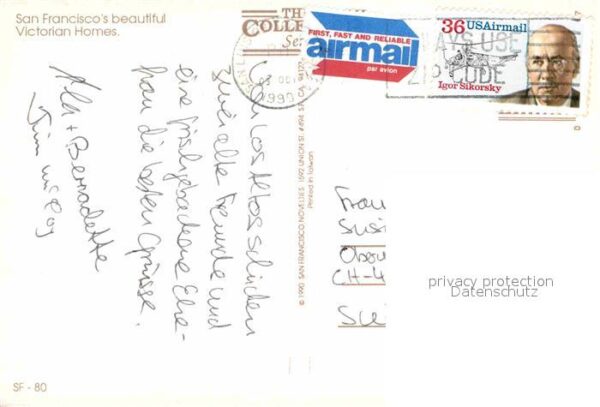 San Francisco's beautiful
Victorian Homes.
THE
COLLE
Se
FIRST, FAST AND RELIABLE
airmail
par avion
36 USAirmail
Igor Sikorsky
ALWAYS USE
ZIP CODE
1990
Von Los Altos schicken
zwei alte Freunde und
eine frischgebackene Ehe-
frau die besten Grüsse.
Alex + Bernadette
© 1990 SAN FRANCISCO NOVELTIES. 1592 UNION ST. #494 S.F. CA. 94123
Printed in Taiwan
CH-4
privacy protection
Datenschutz
SF - 80